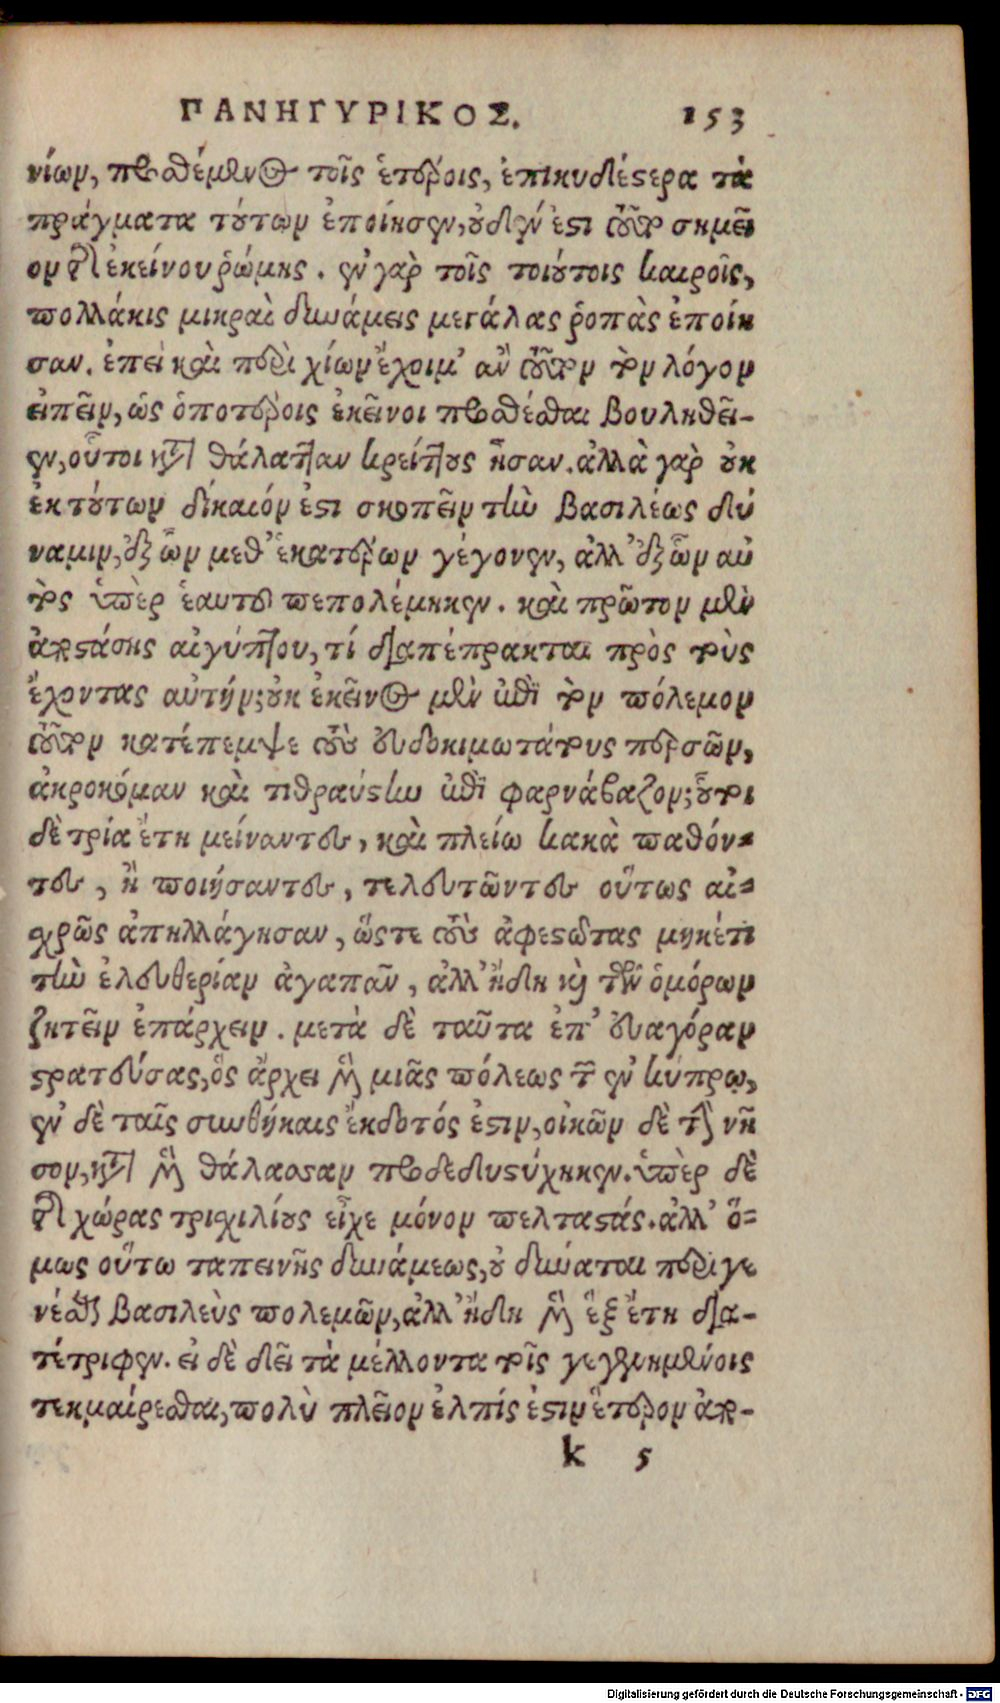 ΠΑΝΗΓΥΡΙΚΟΣ. 153
νίων, προσθέμενος τοῖς ἑτέροις, ἐπικυδέστερα τὰ
πράγματα τούτων ἐποίησεν, οὐδὲν ἐστι τοῦτο σημεῖ
ον τῆς ἐκείνου ῥώμης. ἐν γὰρ τοῖς τοιούτοις καιροῖς,
πολλάκις μικραὶ δυνάμεις μεγάλας ῥοπὰς ἐποίη
σαν. ἐπεὶ καὶ περὶ χίων ἔχοιμ' ἂν τοῦτον τὸν λόγον
εἰπεῖν, ὡς ὁποτέροις ἐκεῖνοι προσθέσθαι βουληθεῖ-
εν, οὗτοι κατὰ θάλατταν κρείττους ἦσαν. ἀλλὰ γὰρ οὐκ
ἐκ τούτων δίκαιόν ἐστι σκοπεῖν τὴν βασιλέως δύ
ναμιν, ἐξ ὧν μεθ' ἑκατέρων γέγονεν, ἀλλ' ἐξ ὧν αὐ
τὸς ὑπὲρ ἑαυτοῦ πεπολέμηκεν. καὶ πρῶτον μὲν
ἀποστάσης αἰγύπτου, τί διαπέπρακται πρὸς τοὺς
ἔχοντας αὐτήν; οὐκ ἐκεῖνος μὲν ἐπὶ τὸν πόλεμον
τοῦτον κατέπεμψε τοὺς εὐδοκιμωτάτους περσῶν,
ἀκροκόμαν καὶ τιθραύστην ἐπὶ φαρνάβαζον; οὗτοι
δὲ τρία ἔτη μείναντες, καὶ πλείω κακὰ παθόν-
τες, ἢ ποιήσαντες, τελευτῶντες οὕτως αἰ-
χρῶς ἀπηλλάγησαν, ὥστε τοὺς ἀφεστῶτας μηκέτι
τὴν ἐλευθερίαν ἀγαπᾶν, ἀλλ' ἤδη καὶ τῶν ὁμόρων
ζητεῖν ἐπάρχειν. μετὰ δὲ ταῦτα ἐπ' εὐαγόραν
στρατεύσας, ὃς ἄρχει μὲν μιᾶς πόλεως τῶν ἐν κύπρῳ,
ἐν δὲ ταῖς συνθήκαις ἔκδοτός ἐστιν, οἰκῶν δὲ τὴν νῆ
σον, κατὰ μὲν θάλασσαν προδεδυστύχηκεν. ὑπὲρ δὲ
τῆς χώρας τρισχιλίους εἶχε μόνον πελταστάς. ἀλλ' ὅ-
μως οὕτω ταπεινῆς δυνάμεως, οὐ δύναται περιγε
νέσθαι βασιλεὺς πολεμῶν, ἀλλ' ἤδη μὲν ἓξ ἔτη δια-
τέτριφεν. εἰ δὲ δεῖ τὰ μέλλοντα τοῖς γεγενημένοις
τεκμαίρεσθαι, πολὺ πλεῖον ἐλπίς ἐστιν ἕτερον ἀπο-
k 5
Digitalisierung gefördert durch die Deutsche Forschungsgemeinschaft - DFG